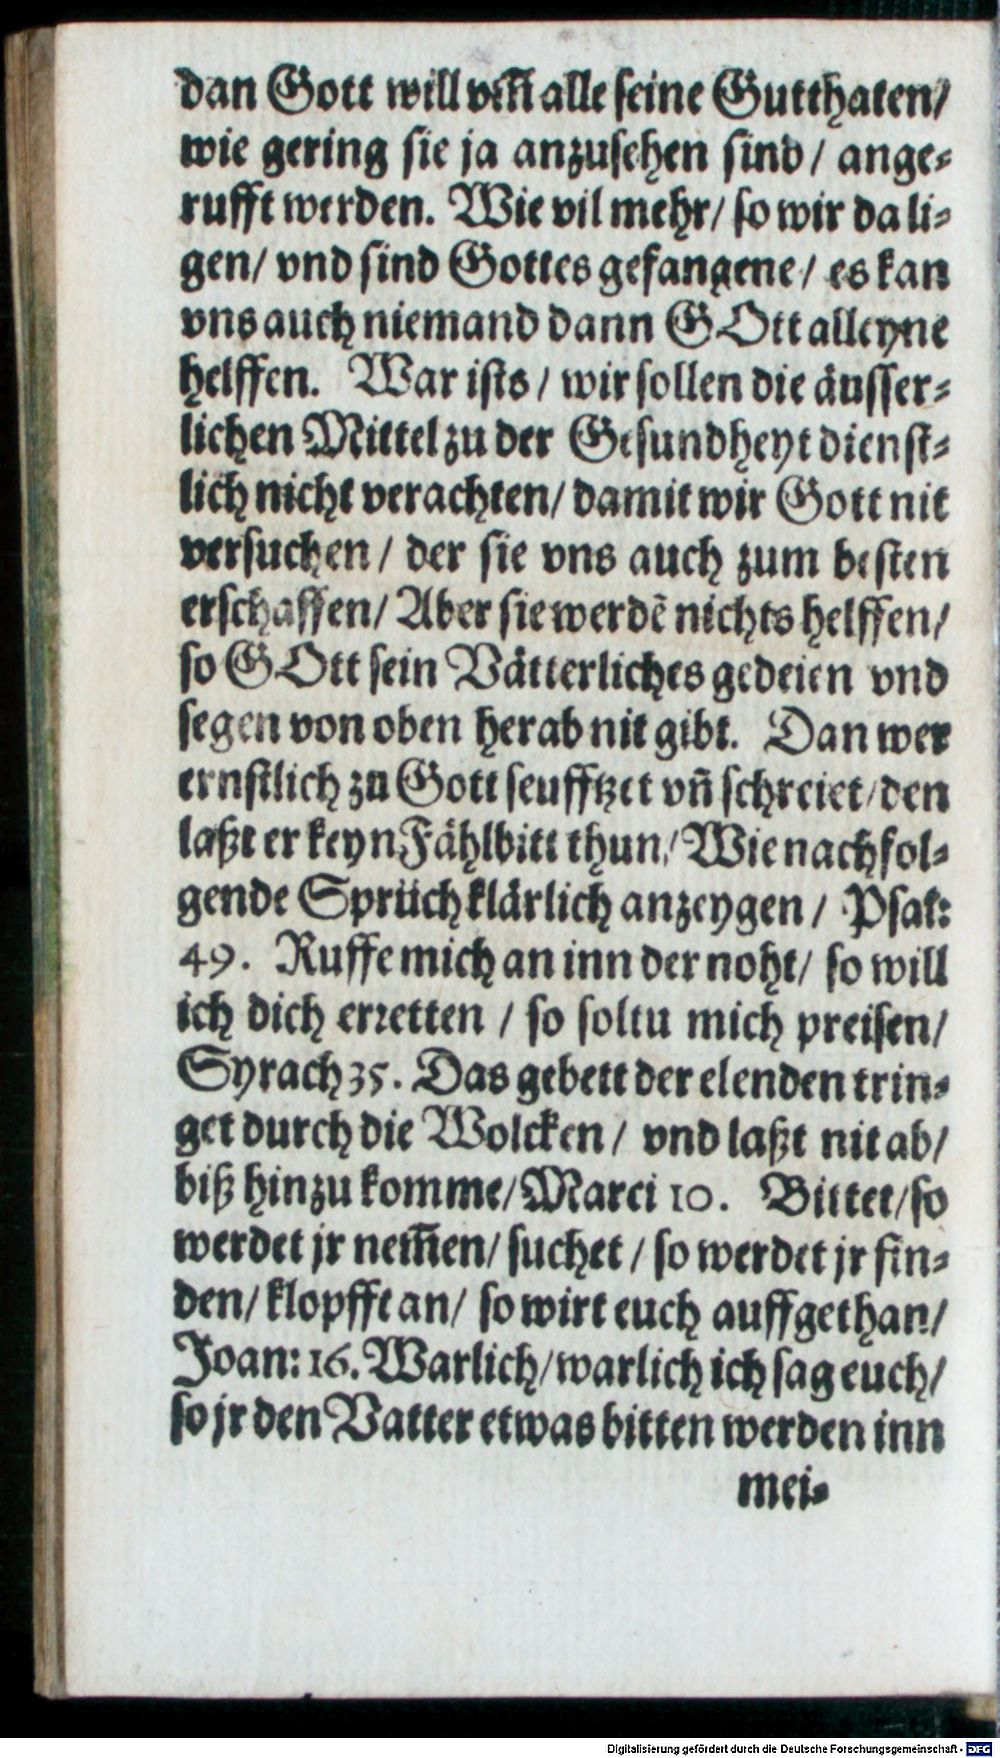 dan Gott will vm̃ alle seine Gutthaten/
wie gering sie ja anzusehen sind / ange⸗
rufft werden. Wie vil mehr/ so wir da li⸗
gen/ vnd sind Gottes gefangene / es kan
vns auch niemand dann GOtt alleyne
helffen. War ists / wir sollen die äusser⸗
lichen Mittel zu der Gesundheyt dienst⸗
lich nicht verachten/ damit wir Gott nit
versuchen / der sie vns auch zum besten
erschaffen/ Aber sie werdē nichts helffen/
so GOtt sein Vätterliches gedeien vnd
segen von oben herab nit gibt. Dan wer
ernstlich zu Gott seufftzet vñ schreiet/den
laßt er keyn Fählbitt thun/ Wie nachfol⸗
gende Sprüch klärlich anzeygen / Psal:
49. Ruffe mich an inn der noht/ so will
ich dich erretten / so soltu mich preisen/
Syrach 35. Das gebett der elenden trin⸗
get durch die Wolcken / vnd laßt nit ab/
biß hinzu komme/ Marci 10. Bittet/so
werdet jr nem̃en/ suchet / so werdet jr fin⸗
den/ klopfft an/ so wirt euch auffgethan/
Joan: 16. Warlich/warlich ich sag euch/
so jr den Vatter etwas bitten werden inn
mei⸗
Digitalisierung gefördert durch die Deutsche Forschungsgemeinschaft - DFG